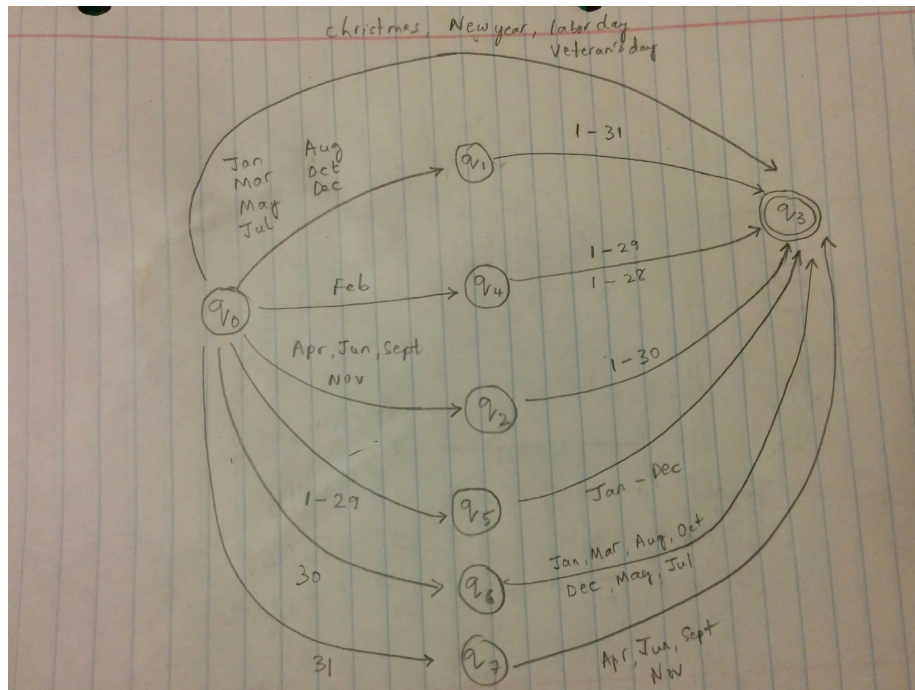 christmas, New year, labor day
Veteran's day
Jan Aug
Mar Oct
May Dec
Jul
q1
1-31
q3
Feb
q4
1-29
1-28
q0
Apr, Jun, Sept
Nov
q2
1-30
1-29
q5
Jan - Dec
30
q6
Jan, Mar, Aug, Oct
Dec, May, Jul
31
q7
Apr, Jun, Sept
Nov